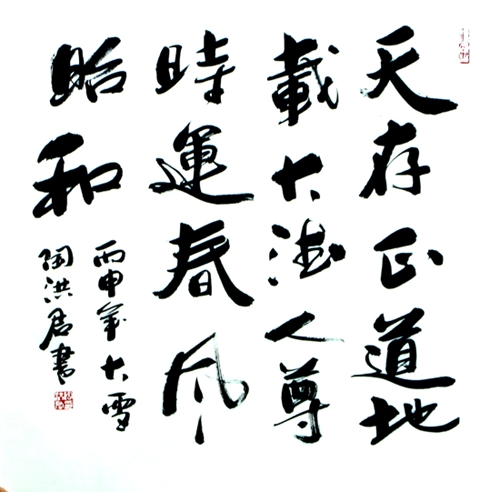 天存正道地
載大德人尊
時運春風
和
丙申年大雪
陶洪君書